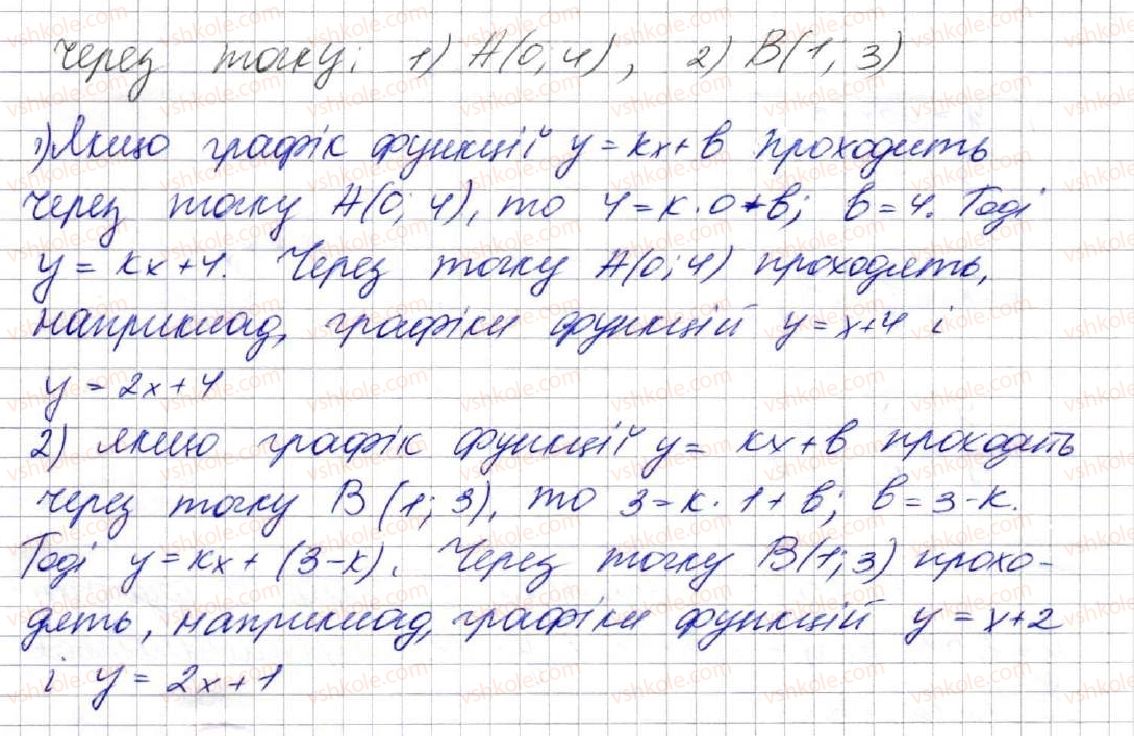 через точку: 1) А(0; 4), 2) В(1; 3)
1) Якщо графік функції у = кх + в проходить
через точку А(0; 4), то 4 = к · 0 + в; в = 4. Тоді
у = кх + 4. Через точку А(0; 4) проходять,
наприклад, графіки функцій у = х + 4 і
у = 2х + 4
2) Якщо графік функції у = кх + в проходить
через точку В (1; 3), то 3 = к · 1 + в; в = 3 - к.
Тоді у = кх + (3 - к). Через точку В(1; 3) прохо-
дять, наприклад, графіки функцій у = х + 2
і у = 2х + 1
vshkole.com